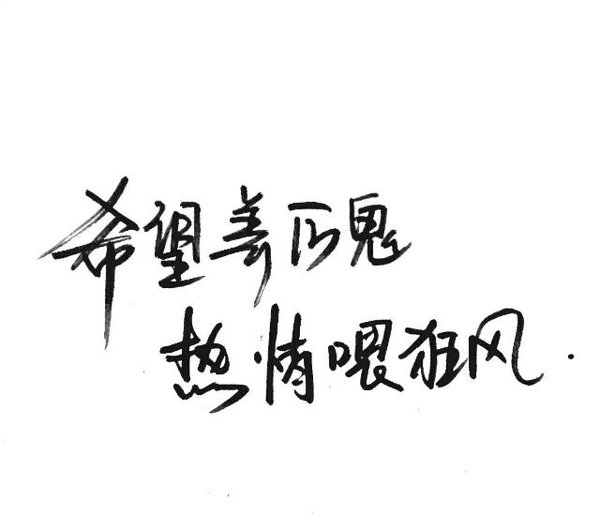 希望养厉鬼
热情喂狂风.